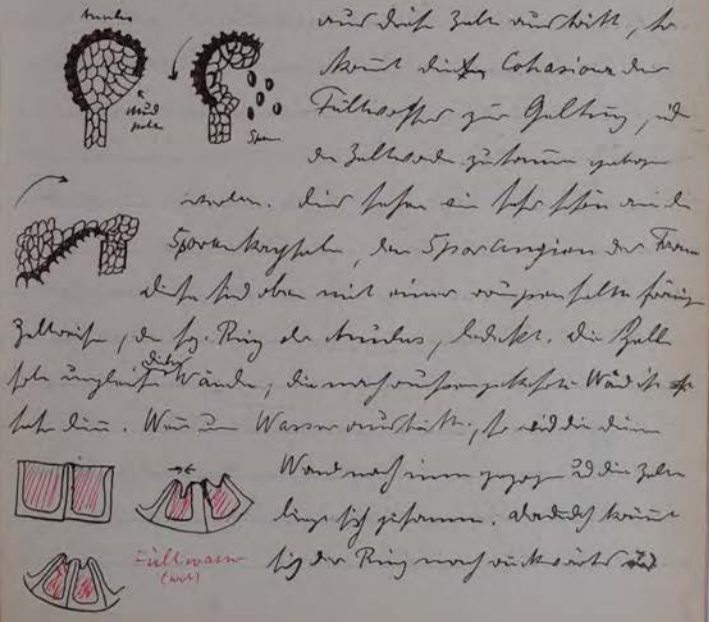 Anulus
aus diesen Zellen austritt, so
kommt die Cohasion des
Füllwassers zur Geltung, und
die Zellwände zusammen gebogen
werden. Dies sehen wir sehr schön an den
Sporenkapseln, den Sporangien der Farne
Diese sind oben mit einer raupenhelmförmigen
Zellreihe, dem sog. Ring oder Anulus, bedeckt. Die Zellen
haben ungleich dicke Wände, die nach außen gekehrte Wand ist
sehr dünn. Wenn nun Wasser austritt, so wird die dünne
Wand nach innen gezogen und die Zellen
biegen sich zusammen. Dadurch krümmt
sich der Ring nach rückwärts
Füllwasser
(rot)